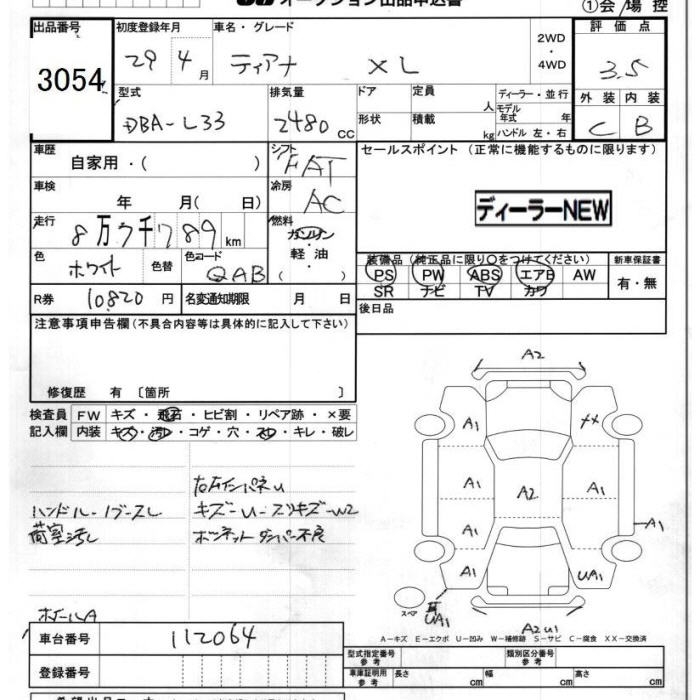 オークション出品申込書
①会/場 控
出品番号 3054
初度登録年月 29 4 月
車名・グレード ティアナ XL
2WD
4WD
評価点 3.5
型式 DBA-L33
排気量 2480 CC
ドア
形状
定員 人
積載 kg
ディーラー・並行
モデル年式 年
ハンドル 左・右
外装 内装
C B
車歴 自家用・( )
シフト FAT
セールスポイント (正常に機能するものに限ります)
車検 年 月( 日)
冷房 AC
ディーラーNEW
走行 8万7千789 km
燃料 ガソリン
軽油
( )
色 ホワイト 色替
色コード QAB
装備品 (純正品に限り○をつけてください)
新車保証書
PS PW ABS エアB AW
SR ナビ TV カワ
有・無
R券 10820 円
名変通知期限 月 日
後日品
注意事項申告欄 (不具合内容等は具体的に記入して下さい)
修復歴 有 〔箇所 〕
検査員 FW キズ・飛石・ヒビ割・リペア跡・×要
記入欄 内装 キズ・汚れ・コゲ・穴・スレ・キレ・破レ
右左インパネU
ハンドル・ノブースレ
キズーU-スリキズーW2
荷室汚し
ボーネットダンパー不良
ホイールA
A2
A1 XX
A1 A2 A1
A1 A1 A1
A1 UA1
スペア
UA1
A2 U1
A-キズ E-エクボ U-凹み W-補修跡 S-サビ C-腐食 XX-交換済
車台番号 112064
登録番号
型式指定番号
参考
類別区分番号
参考
車庫証明用
参考
長さ cm 幅 cm 高さ cm